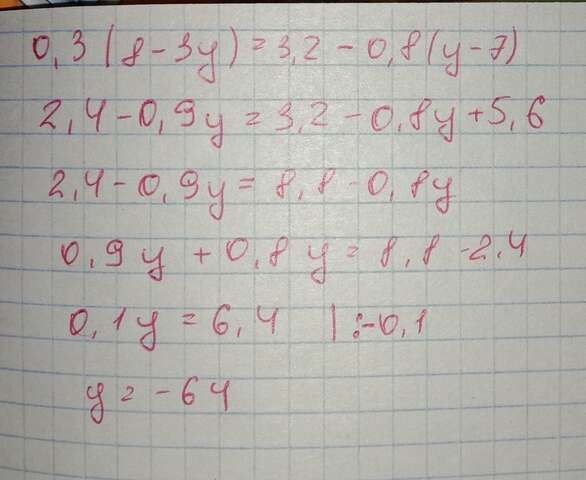 0,3(8-3y)=3,2-0,8(y-7)
2,4-0,9y=3,2-0,8y+5,6
2,4-0,9y=8,8-0,8y
0,9y+0,8y=8,8-2,4
0,1y=6,4 |:-0,1
y=-64